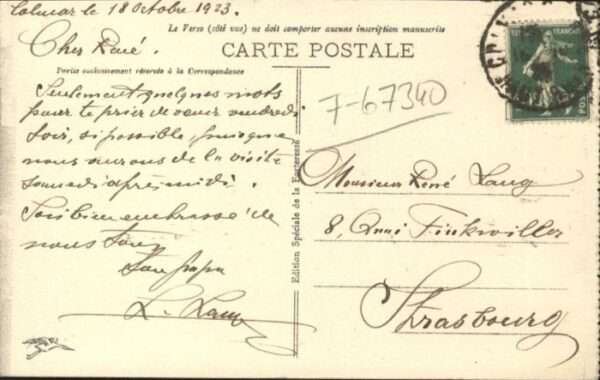 Colmar le 18 Octobre 1923.
Le Verso (côté vue) ne doit comporter aucune inscription manuscrite
Cher René.
CARTE POSTALE
Partie exclusivement réservée à la Correspondance
Seulement quelques mots
pour te prier de venir vendredi
soir, si possible, puisque
nous aurons de la visite
samedi après-midi.
Sois bien embrassé de
nous tous
Ton papa
L. Lang
7-67340
Edition Spéciale de la
Monsieur René Lang
8, Quai Finkwiller
Strasbourg
FRANÇAISE
POSTES